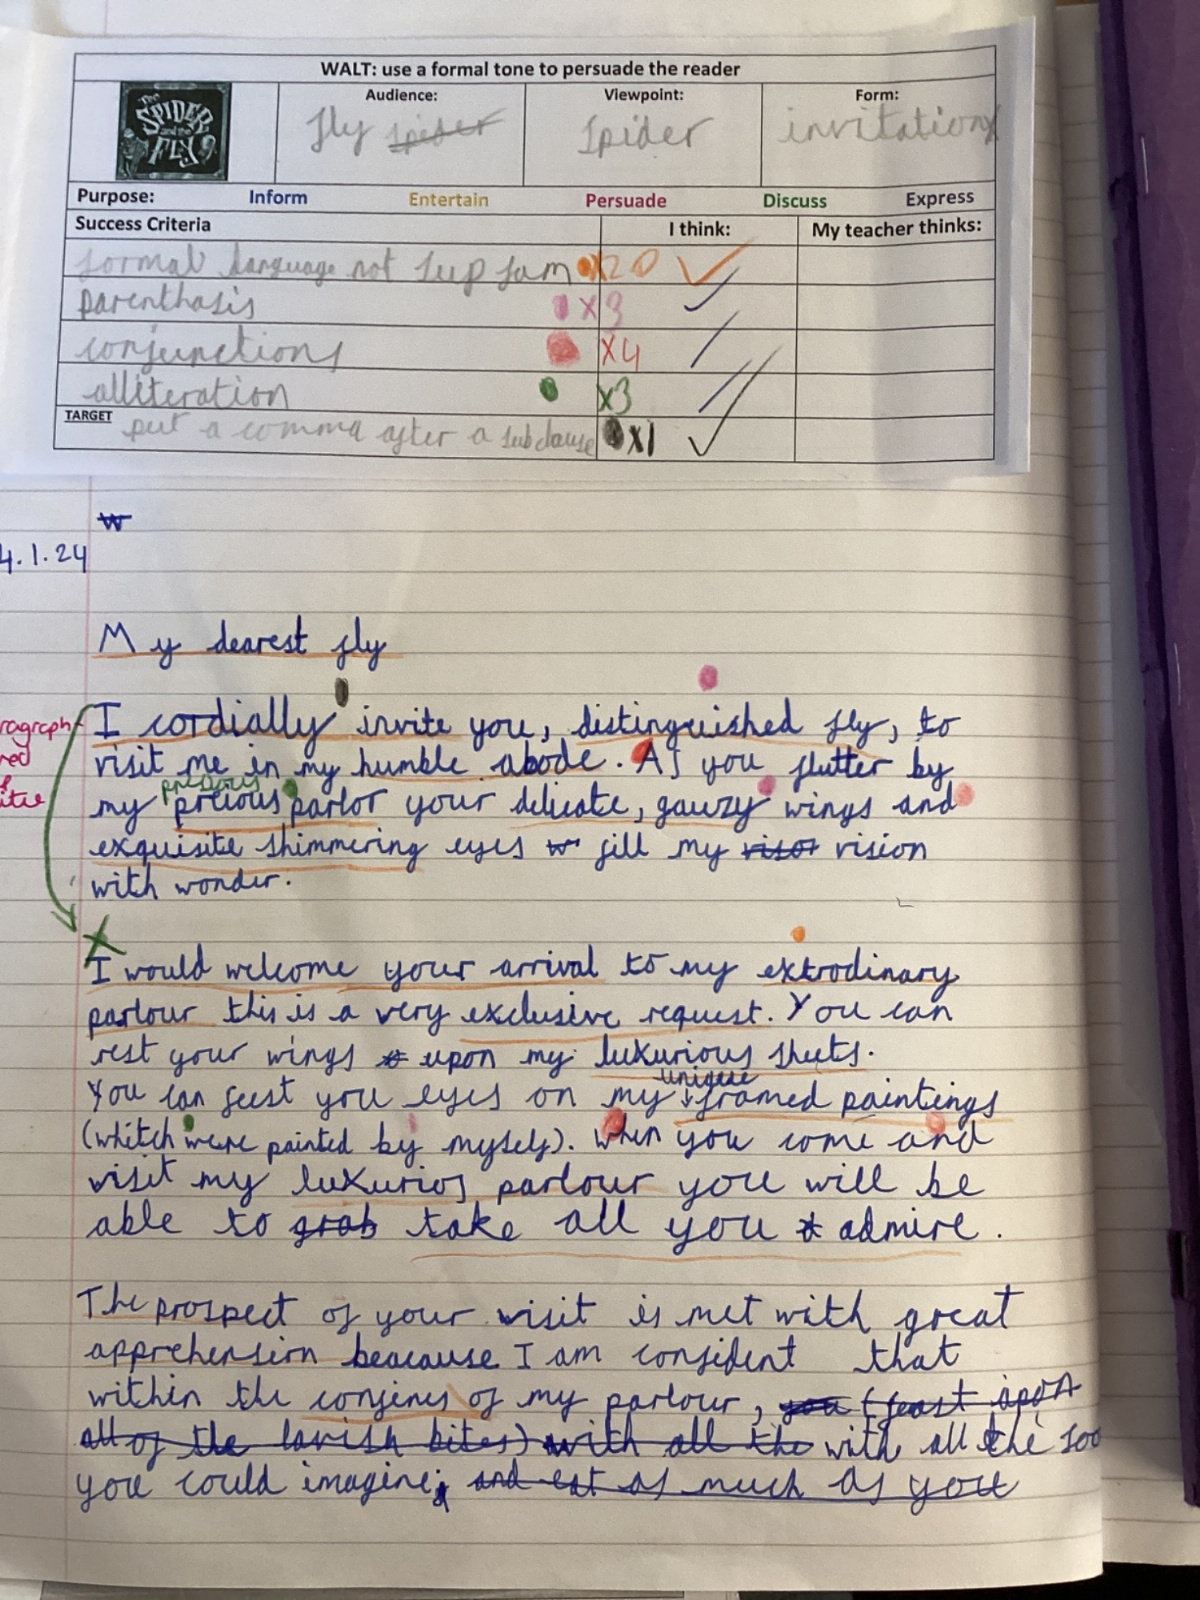 WALT: use a formal tone to persuade the reader
The SPIDER and the FLY
Audience: Viewpoint: Form:
fly spider Spider invitation
Purpose: Inform Entertain Persuade Discuss Express
Success Criteria I think: My teacher thinks:
formal language not x20
parenthasis x3
conjunctions x4
alliteration x3
TARGET put a comma after a subclause x1
W
4.1.24
My dearest fly
I cordially invite you, distinguished fly, to
visit me in my humble abode. As you flutter by
precious
my precious parlor your delicate, gauzy wings and
exquisite shimmering eyes w fill my visor vision
with wonder.
I would welcome your arrival to my extrodinary
parlour this is a very exclusive request. You can
rest your wings upon my luxurious sheets.
unique
You can feest you eyes on my framed paintings
(whitch were painted by myself). When you come and
visit my luxurios parlour you will be
able to grab take all you admire.
The prospect of your visit is met with great
apprehension beacause I am confident that
within the confines of my parlour, you (feast apon
all of the lavish bites) with all the with all the foo
you could imagine; and eat as much as you